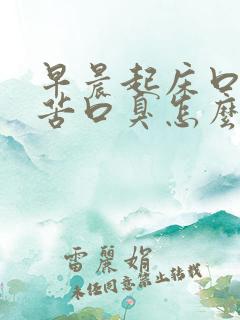 早晨起床口
苦口臭怎麼
雷麗娟
未经同意禁止转载